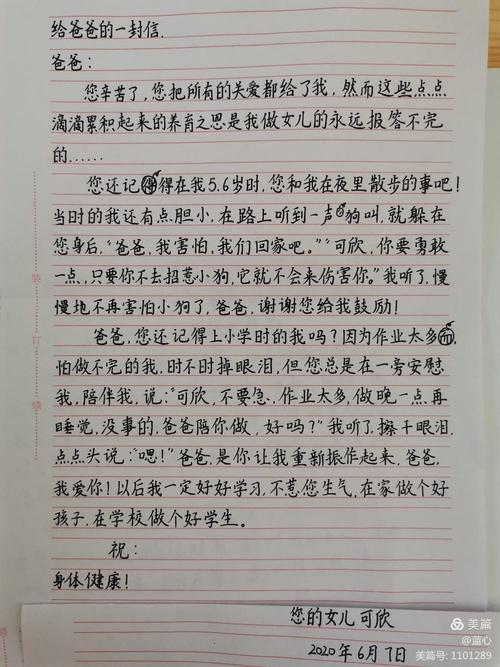 给爸爸的一封信.
爸爸：
您辛苦了，您把所有的关爱都给了我，然而这些点点
滴滴累积起来的养育之恩是我做女儿的永远报答不完
的……
您还记得在我5.6岁时，您和我在夜里散步的事吧！
当时的我还有点胆小，在路上听到一声狗叫，就躲在
您身后，“爸爸，我害怕，我们回家吧。”“可欣，你要勇敢
一点，只要你不去招惹小狗，它就不会来伤害你。”我听了，慢
慢地不再害怕小狗了，爸爸，谢谢您给我鼓励！
爸爸，您还记得上小学时的我吗？因为作业太多
怕做不完的我，时不时掉眼泪，但您总是在一旁安慰
我，陪伴我，说：“可欣，不要急，作业太多，做晚一点再
睡觉，没事的，爸爸陪你做，好吗？”我听了，擦干眼泪，
点点头说：“嗯！”爸爸，是你让我重新振作起来，爸爸，
我爱你！以后我一定好好学习，不惹您生气，在家做个好
孩子，在学校做个好学生。
祝：
身体健康！
您的女儿 可欣
2020年6月7日
装
订
线
美篇
@蓝心
美篇号: 1101289